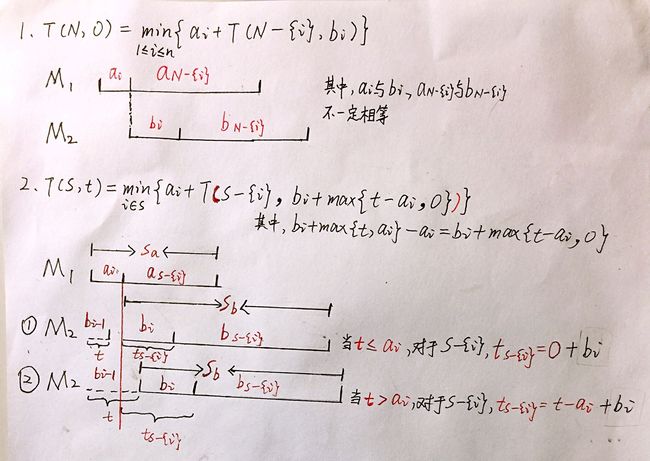 1. T(N,0) = min{ai+T(N-{i},bi)}
1≤i≤n
M1 ai aN-{i}
其中,ai与bi、aN-{i}与bN-{i}
不一定相等
M2 bi bN-{i}
2. T(S,t)=min{ai+T(S-{i}, bi+max{t-ai,0})}
i∈S
其中,bi+max{t,ai}-ai=bi+max{t-ai,0}
Sa
M1 ai aS-{i}
Sb
① M2 bi-1 bi bS-{i} 当t≤ai,对于S-{i},tS-{i}=0+bi
t tS-{i}
Sb
② M2 bi-1 bi bS-{i} 当t>ai,对于S-{i},tS-{i}=t-ai+bi
t
tS-{i}